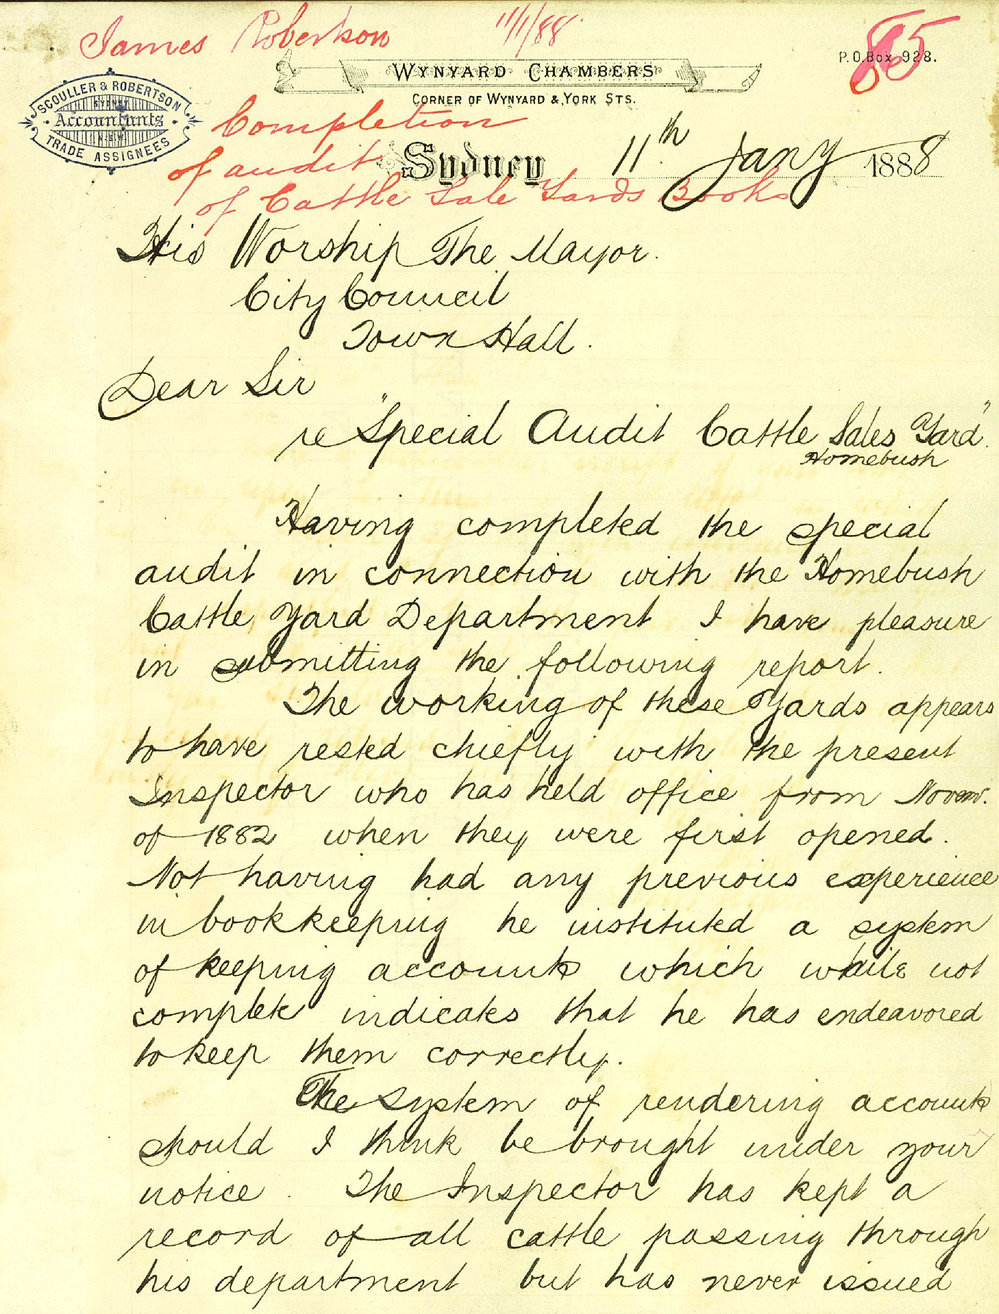 James Robertson 11/1/88 865
P.O.Box 928.
WYNYARD CHAMBERS
CORNER OF WYNYARD & YORK STS.
SCOULLER & ROBERTSON
SYDNEY
Accountants
N.S.W.
TRADE ASSIGNEES
Completion
of audit
of Cattle Sale Yards Books
Sydney 11th Jany 1888
His Worship The Mayor.
City Council
Town Hall.
Dear Sir
re "Special Audit Cattle Sales Yard".
Homebush
Having completed the special
audit in connection with the Homebush
Cattle Yard Department I have pleasure
in submitting the following report.
The working of these Yards appears
to have rested chiefly with the present
Inspector who has held office from Novem.
of 1882 when they were first opened.
Not having had any previous experience
in bookkeeping he instituted a system
of keeping accounts which while not
complete indicates that he has endeavored
to keep them correctly.
The system of rendering accounts
should I think be brought under your
notice. The Inspector has kept a
record of all cattle passing through
his department but has never issued